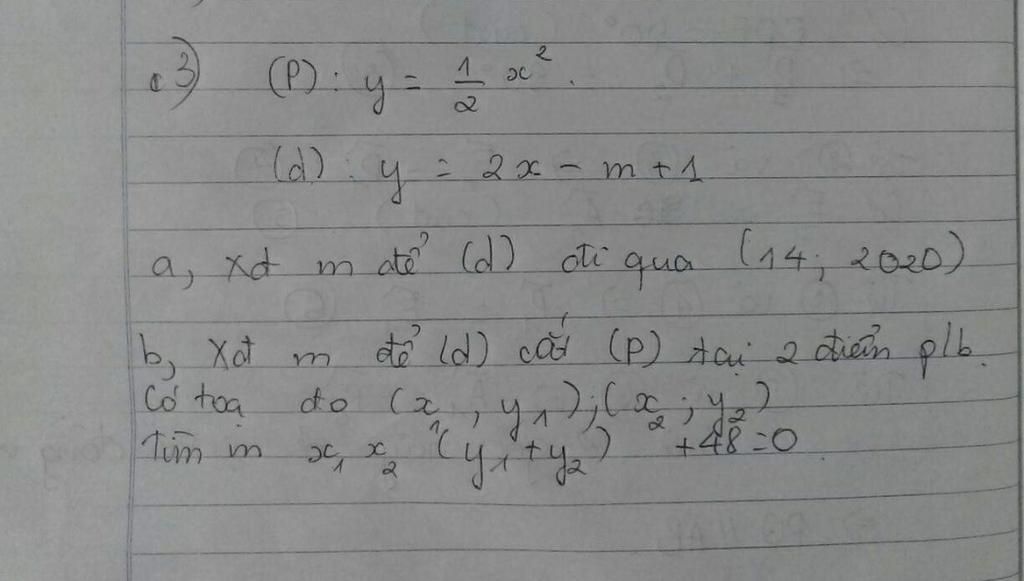 c3) (P): y = 1/2 x².
(d): y = 2x - m + 1
a, Xđ m để (d) đi qua (14; 2020)
b, Xđ m để (d) cắt (P) tại 2 điểm p/b.
Có toạ độ (x₁, y₁);(x₂; y₂)
Tìm m x₁ x₂ (y₁ + y₂) + 48 = 0